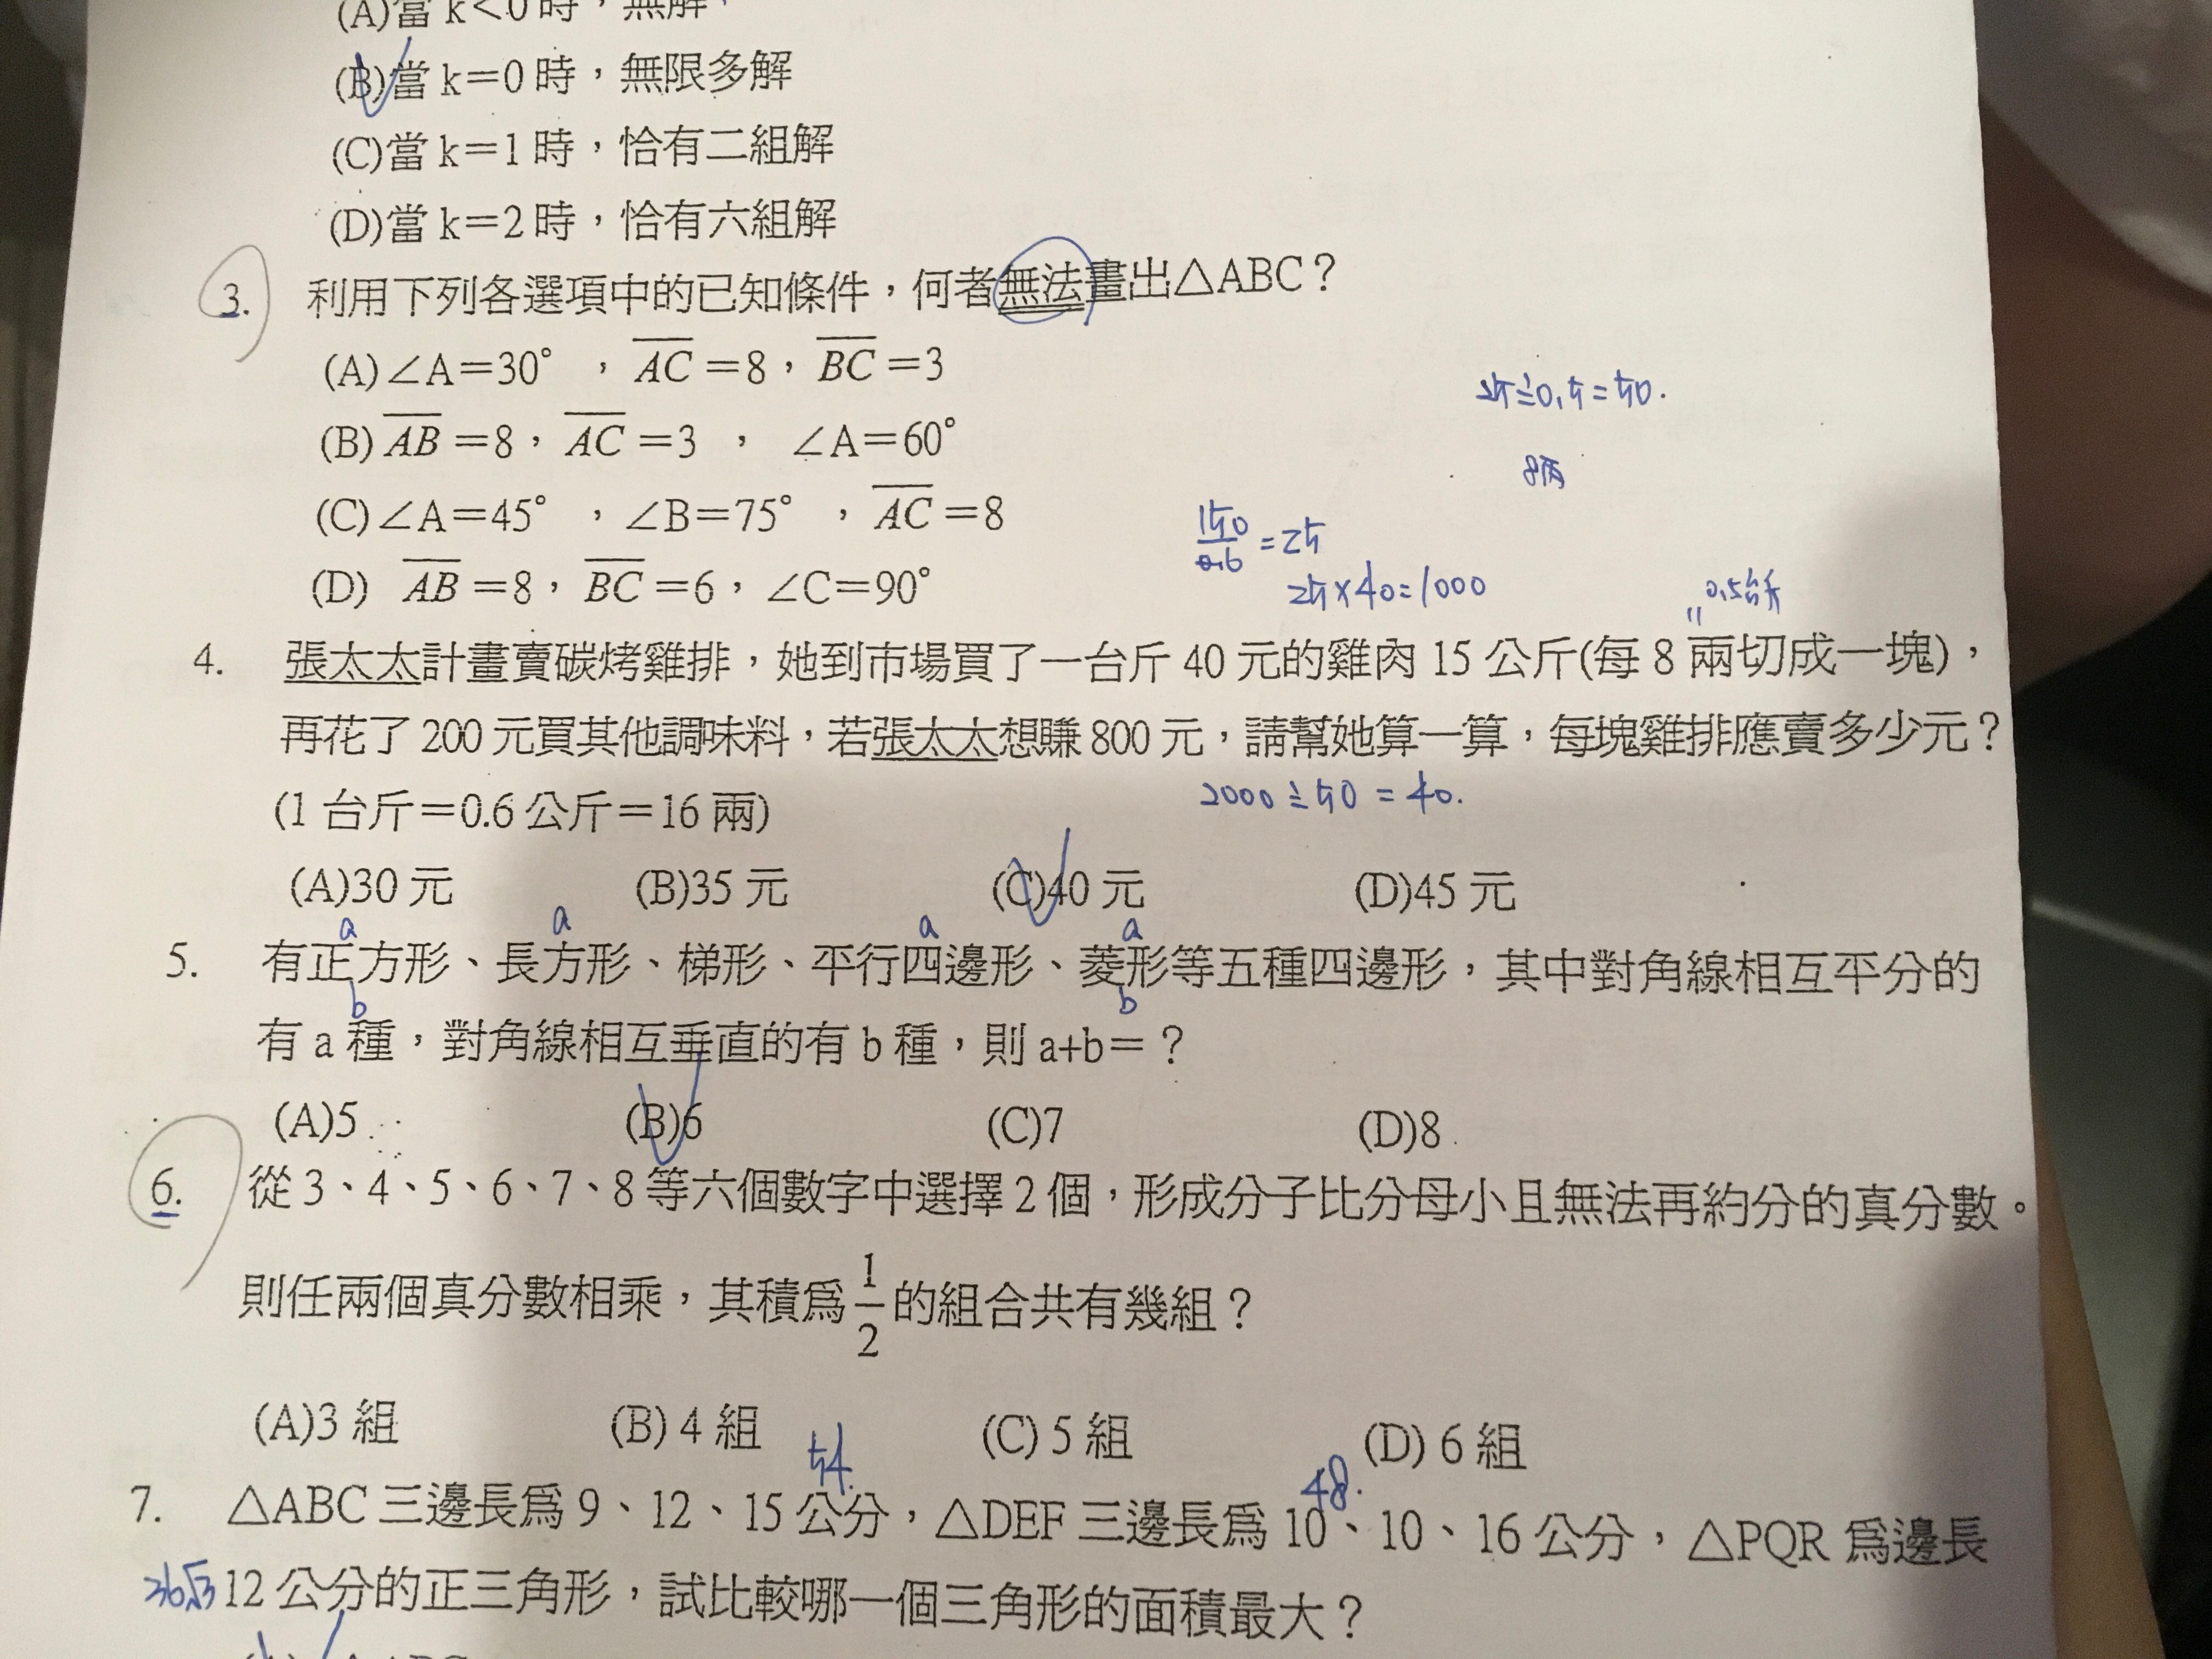 (A)當 k<0 時，無解
(B)當 k＝0 時，無限多解
(C)當 k＝1 時，恰有二組解
(D)當 k＝2 時，恰有六組解
3. 利用下列各選項中的已知條件，何者無法畫出△ABC？
(A)∠A＝30°，AC＝8，BC＝3
(B) AB＝8，AC＝3，∠A＝60°
(C)∠A＝45°，∠B＝75°，AC＝8
(D) AB＝8，BC＝6，∠C＝90°
25÷0.5＝50.
8兩
150/0.6＝25
25×40＝1000
0.5台斤
4. 張太太計畫賣碳烤雞排，她到市場買了一台斤 40 元的雞肉 15 公斤(每 8 兩切成一塊)，
再花了 200 元買其他調味料，若張太太想賺 800 元，請幫她算一算，每塊雞排應賣多少元？
(1 台斤＝0.6 公斤＝16 兩)
2000÷50＝40.
(A)30 元 (B)35 元 (C)40 元 (D)45 元
a a a a
5. 有正方形、長方形、梯形、平行四邊形、菱形等五種四邊形，其中對角線相互平分的
b b
有 a 種，對角線相互垂直的有 b 種，則 a+b＝？
(A)5 (B)6 (C)7 (D)8
6. 從 3、4、5、6、7、8 等六個數字中選擇 2 個，形成分子比分母小且無法再約分的真分數。
則任兩個真分數相乘，其積為 1/2 的組合共有幾組？
(A)3 組 (B) 4 組 (C) 5 組 (D) 6 組
54 48.
7. △ABC 三邊長為 9、12、15 公分，△DEF 三邊長為 10、10、16 公分，△PQR 為邊長
36√3
12 公分的正三角形，試比較哪一個三角形的面積最大？